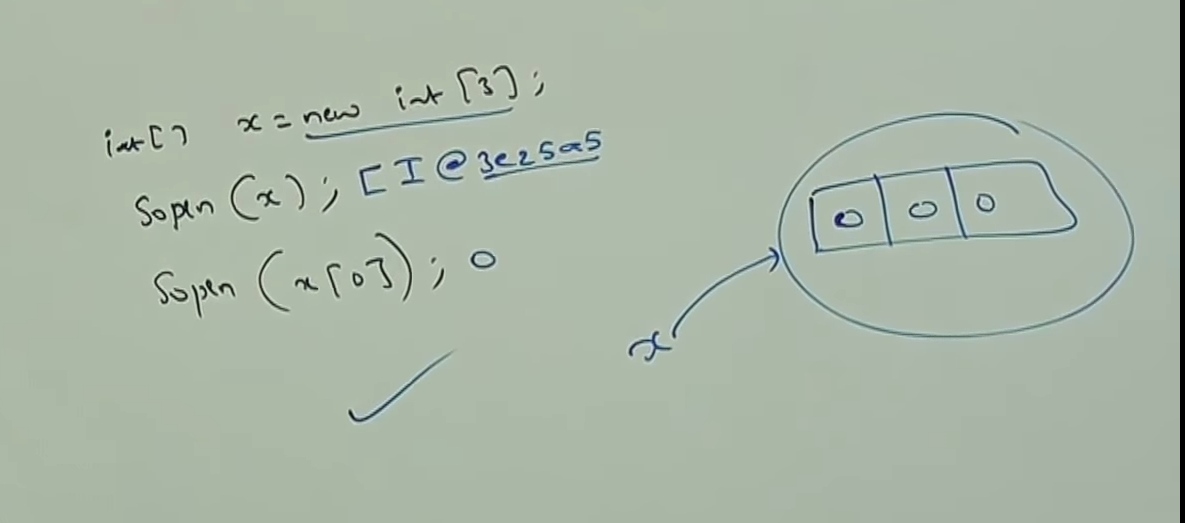 int[] x = new int[3];
Sopln(x); [I@3e25a5
Sopln(x[0]); 0
0 0 0
x